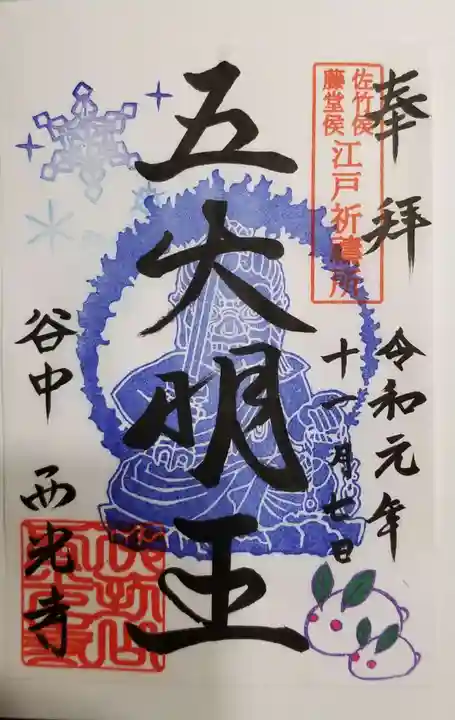 奉拝
佐竹侯
藤堂侯
江戸祈禱所
令和元年
十一月七日
五大明王
谷中 西光寺